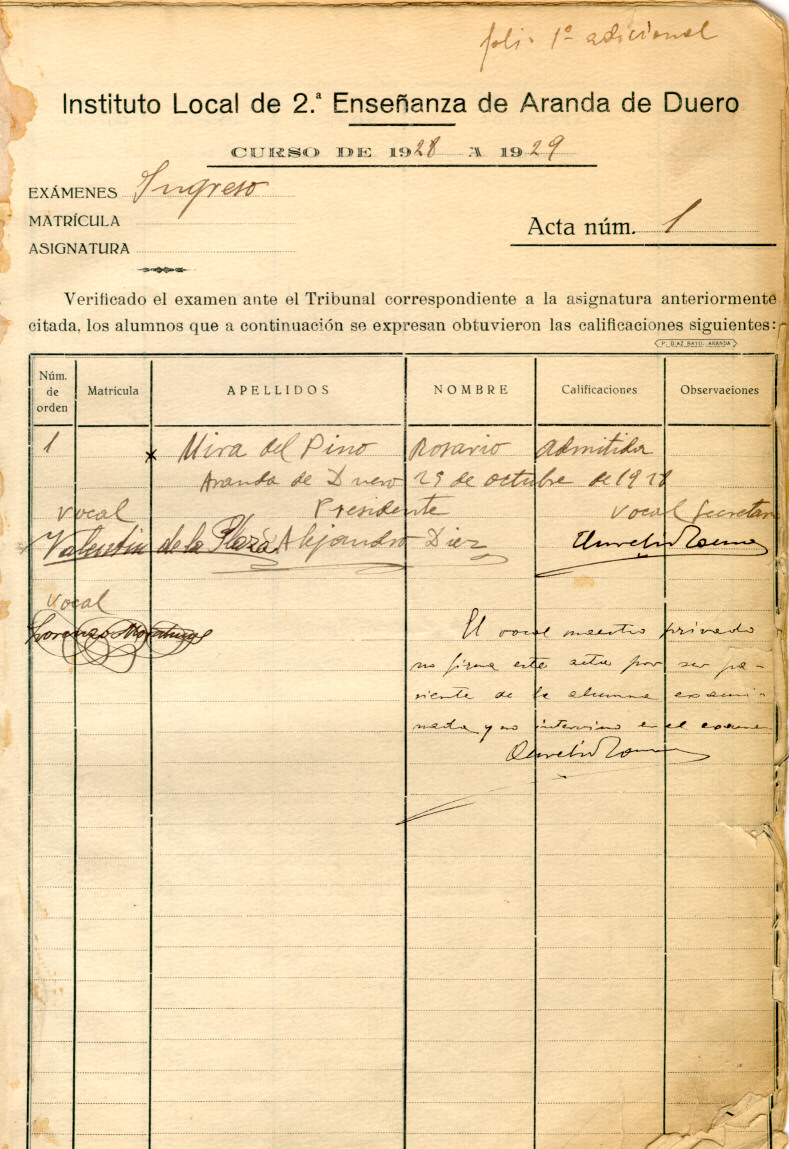 foli. 1º adicional
Instituto Local de 2.ª Enseñanza de Aranda de Duero
CURSO DE 1928 A 1929
EXÁMENES Ingreso
MATRÍCULA
ASIGNATURA
Acta núm. 1
Verificado el examen ante el Tribunal correspondiente a la asignatura anteriormente
citada, los alumnos que a continuación se expresan obtuvieron las calificaciones siguientes:
P. DIAZ BAYO.-ARANDA
Núm. de orden Matrícula APELLIDOS NOMBRE Calificaciones Observaciones
1 x Mira del Pino Rosario Admitida
Aranda de Duero 29 de octubre de 1928
Vocal Presidente Vocal Secretar
Valentín de la Plaza Alejandro Diez Aurelio
Vocal
Lorenzo
El vocal maestro privado
no firma este acta por ser pa-
riente de la alumna exami-
nada y no intervino en el examen
Aurelio